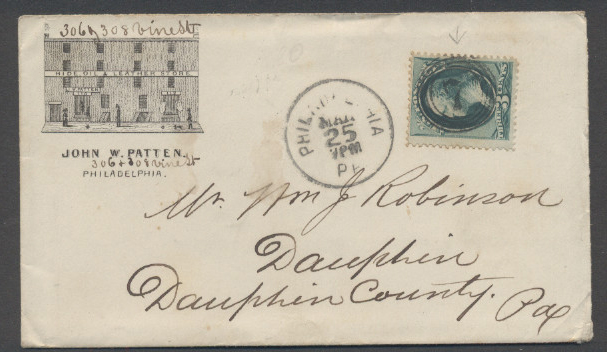 306 & 308 Vine St
HIDE, OIL & LEATHER STORE
JOHN W. PATTEN,
306 & 308 Vine St
PHILADELPHIA.
PHILADELPHIA
MAR
25
7PM
PA
THREE 3 CENTS
Mr. Wm J Robinson
Dauphin
Dauphin County.
Pa